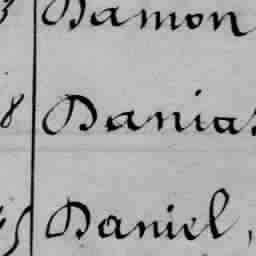 3 Damon
8 Danias
45 Daniel,